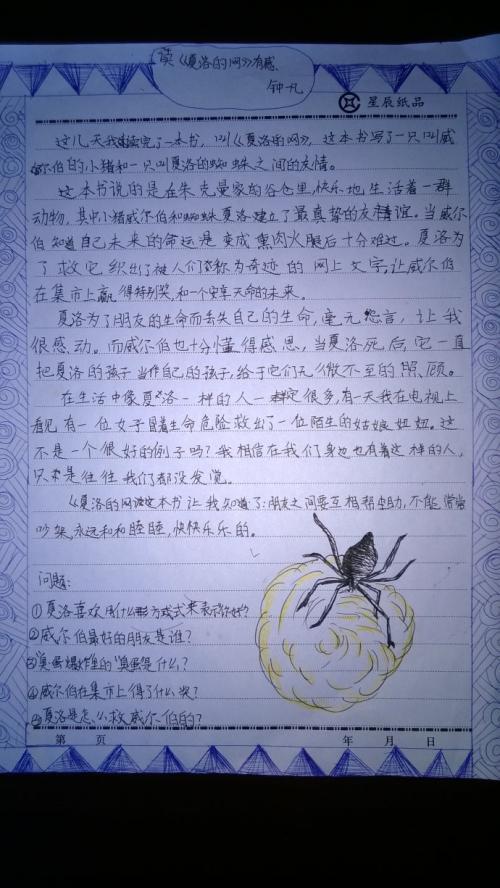 读《夏洛的网》有感
钟一凡
星辰纸品
这几天我读完了一本书，叫《夏洛的网》，这本书写了一只叫威
尔伯的小猪和一只叫夏洛的蜘蛛之间的友情。
这本书说的是在朱克曼家的谷仓里，快乐地生活着一群
动物，其中小猪威尔伯和蜘蛛夏洛建立了最真挚的友谊。当威尔
伯知道自己未来的命运是变成熏肉火腿后十分难过。夏洛为
了救它，织出了被人们称为奇迹的网上文字，让威尔伯
在集市上赢得特别奖，和一个安享天命的未来。
夏洛为了朋友的生命而丢失自己的生命，毫无怨言，让我
很感动。而威尔伯也十分懂得感恩，当夏洛死后，它一直
把夏洛的孩子当作自己的孩子，给于它们无微不至的照顾。
在生活中像夏洛一样的人一定很多，有一天我在电视上
看见有一位女子冒着生命危险救出了一位陌生的姑娘妞妞。这
不是一个很好的例子吗？我相信在我们身边也有着这样的人，
只是往往我们都没发觉。
《夏洛的网》这本书让我知道了：朋友之间要互相帮助，不能常常
吵架，永远和和睦睦，快快乐乐的。
问题：
①夏洛喜欢用什么方式来表示你好？
②威尔伯最好的朋友是谁？
③臭蛋爆炸里的臭蛋是什么？
④威尔伯在集市上得了什么奖？
⑤夏洛是怎么救威尔伯的？
第 页 年 月 日